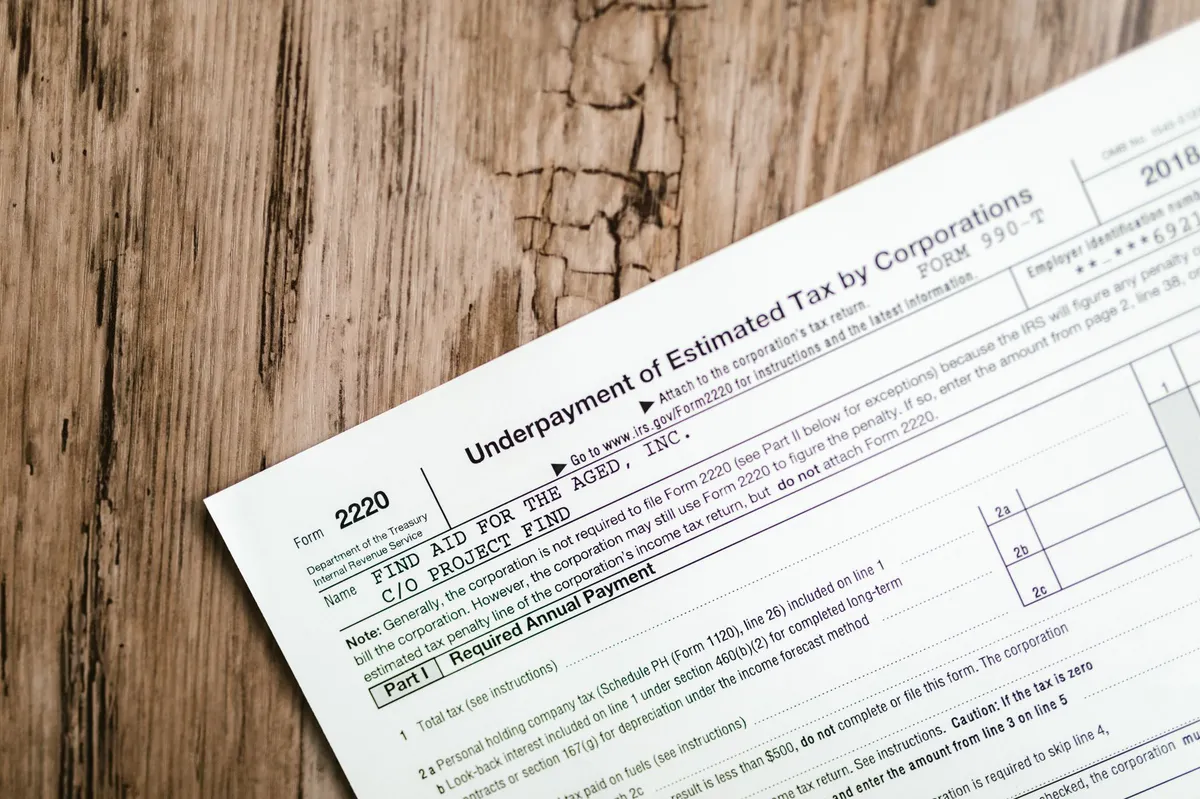 OMB No.
2018
Form 2220
Underpayment of Estimated Tax by Corporations
FORM 990-T
Department of the Treasury
Internal Revenue Service
▶ Attach to the corporation's tax return.
▶ Go to www.irs.gov/Form2220 for instructions and the latest information.
Name
FIND AID FOR THE AGED, INC.
C/O PROJECT FIND
Employer identification
**-***692
Note: Generally, the corporation is not required to file Form 2220 (see Part II below for exceptions) because the IRS will figure any penalty
bill the corporation. However, the corporation may still use Form 2220 to figure the penalty. If so, enter the amount from page 2, line 38,
estimated tax penalty line of the corporation's income tax return, but do not attach Form 2220.
Part I Required Annual Payment
1 Total tax (see instructions)
1
2 a Personal holding company tax (Schedule PH (Form 1120), line 26) included on line 1
2a
b Look-back interest included on line 1 under section 460(b)(2) for completed long-term
contracts or section 167(g) for depreciation under the income forecast method
2b
tax paid on fuels (see instructions)
2c
2c
result is less than $500, do not complete or file this form. The corporation
tax return. See instructions. Caution: If the tax is zero
and enter the amount from line 3 on line 5
is required to skip line 4,
checked, the corporation